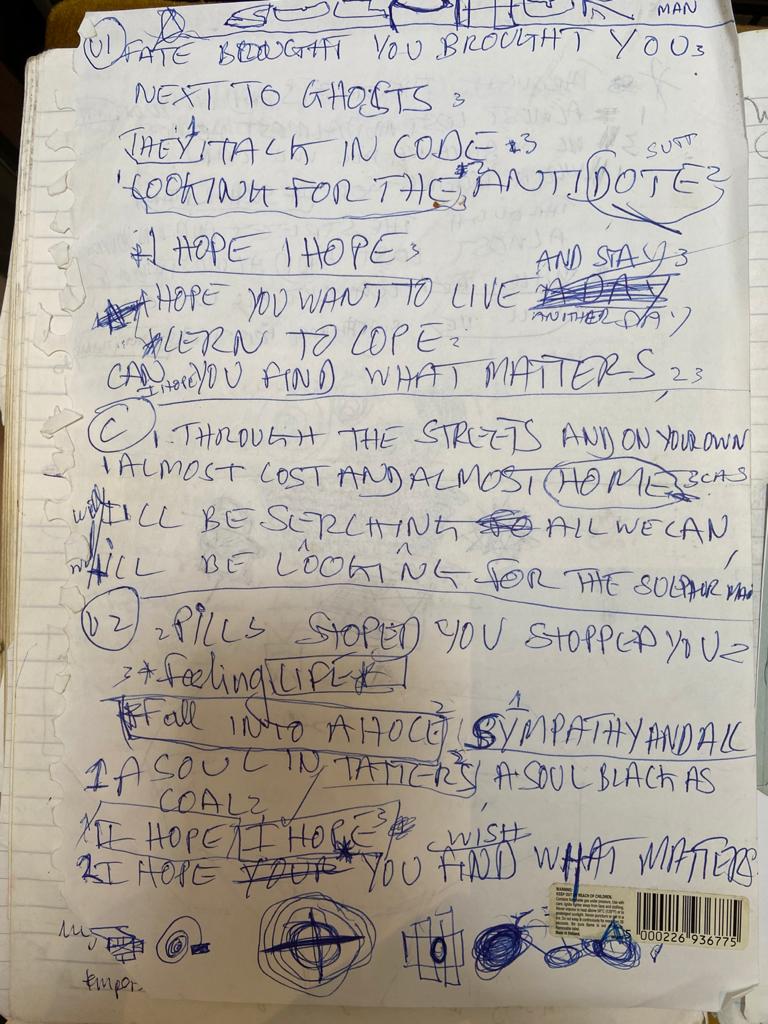 MAN
V1 FATE BROUGHT YOU BROUGHT YOU 3
NEXT TO GHOSTS 3
THEY 1 TALK IN CODE 3
LOOKING FOR THE ANTIDOTE 2
I HOPE I HOPE 3
AND STAY 3
HOPE YOU WANT TO LIVE A DAY
ANOTHER DAY
LERN TO COPE 2
CAN I HOPE YOU FIND WHAT MATTERS 23
C 1 THROUGH THE STREETS AND ON YOUR OWN
1 ALMOST LOST AND ALMOST HOME
WILL BE SERCHING ALL WE CAN
WILL BE LOOKING FOR THE SULPHUR MAN
V2 2 PILLS STOPED YOU STOPPED YOU 2
3 * feeling LIFE
Fall INTO A HOLE 2 1 SYMPATHY AND ALL
1 A SOUL IN TATTERS 2 A SOUL BLACK AS
COAL 2
I HOPE I HOPE 3
WISH
2 I HOPE YOUR YOU FIND WHAT MATTERS
WARNING
KEEP OUT OF REACH OF CHILDREN.
5 000226 936775